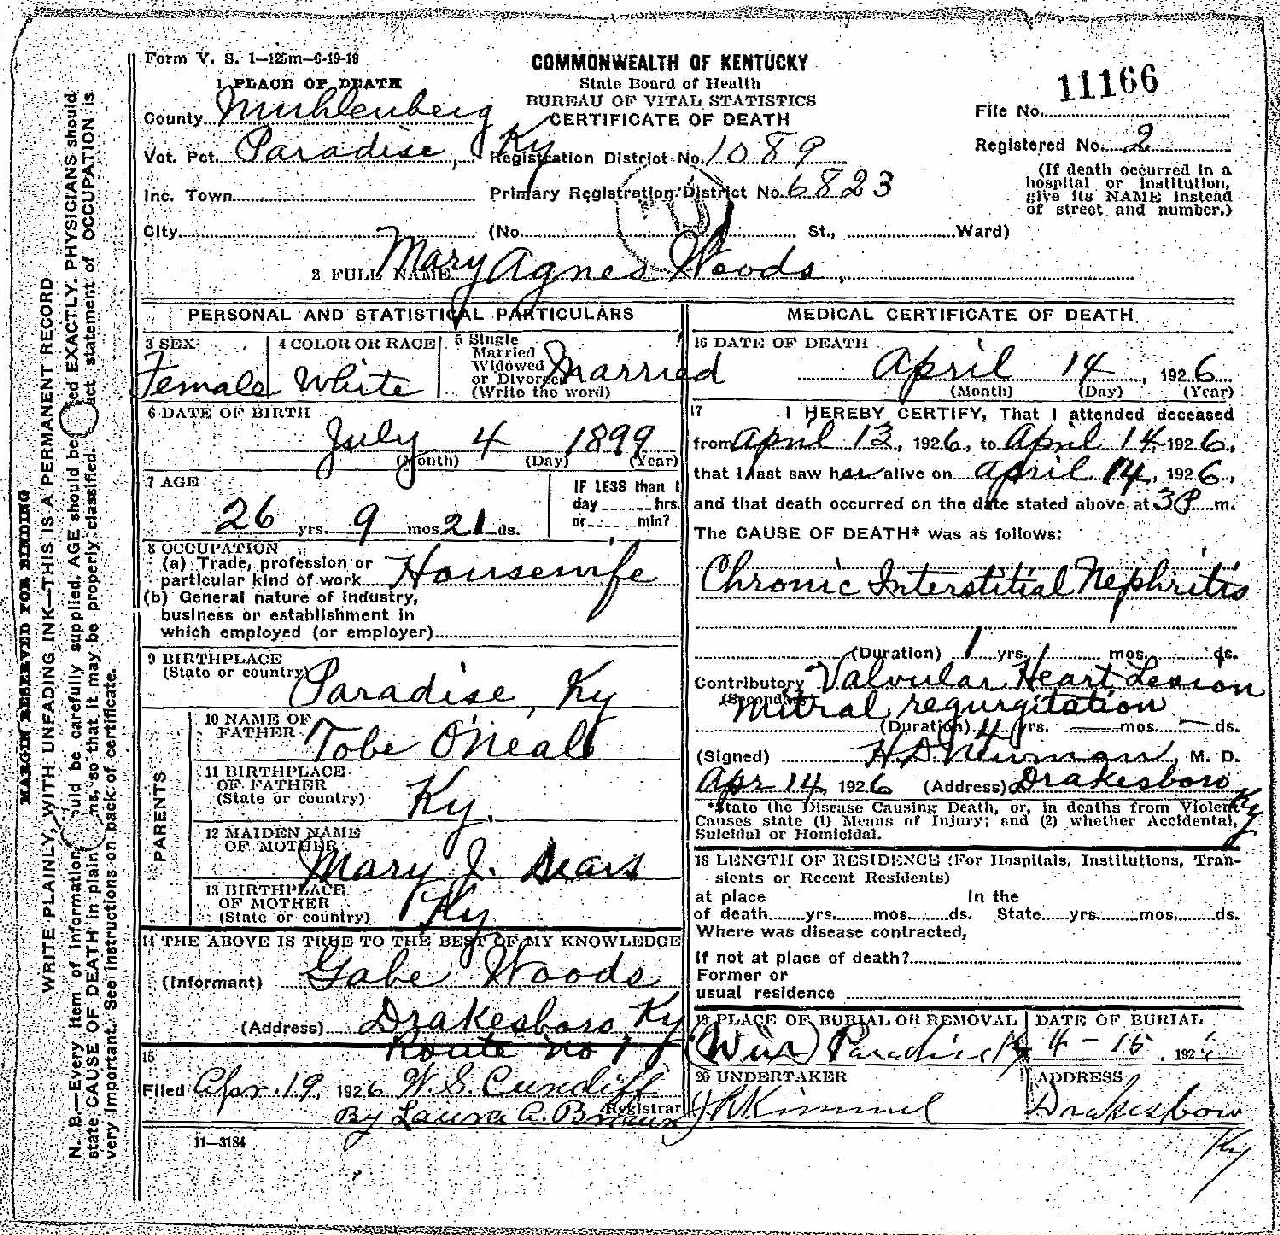 Form V. S. 1—125m—6-19-16
COMMONWEALTH OF KENTUCKY
State Board of Health
BUREAU OF VITAL STATISTICS
CERTIFICATE OF DEATH
11166
File No.
Registered No. 2
(If death occurred in a
hospital or institution,
give its NAME instead
of street and number.)
1 PLACE OF DEATH
County Muhlenberg
Vot. Pct. Paradise, Ky
Registration District No. 1089
Inc. Town
Primary Registration District No. 6823
City
(No. St., Ward)
2 FULL NAME Mary Agnes Woods
PERSONAL AND STATISTICAL PARTICULARS
3 SEX Female
4 COLOR OR RACE White
5 Single
Married
Widowed
or Divorced
(Write the word)
Married
6 DATE OF BIRTH
July 4 1899
(Month) (Day) (Year)
7 AGE
26 yrs. 9 mos. 21 ds.
IF LESS than 1
day hrs.
or min?
8 OCCUPATION
(a) Trade, profession or
particular kind of work Housewife
(b) General nature of industry,
business or establishment in
which employed (or employer)
9 BIRTHPLACE
(State or country) Paradise, Ky
PARENTS
10 NAME OF
FATHER Tobe O'Neal
11 BIRTHPLACE
OF FATHER
(State or country) Ky.
12 MAIDEN NAME
OF MOTHER Mary J. Sears
13 BIRTHPLACE
OF MOTHER
(State or country) Ky
14 THE ABOVE IS TRUE TO THE BEST OF MY KNOWLEDGE
(Informant) Gabe Woods
(Address) Drakesboro Ky
Route no 1
15
Filed Apr. 19, 1926 W. S. Cundiff
By Laura A. Registrar
11—3184
MEDICAL CERTIFICATE OF DEATH
16 DATE OF DEATH
April 14, 1926
(Month) (Day) (Year)
17 I HEREBY CERTIFY, That I attended deceased
from April 13, 1926, to April 14, 1926,
that I last saw her alive on April 14, 1926,
and that death occurred on the date stated above at 3 P m.
The CAUSE OF DEATH* was as follows:
Chronic Interstitial Nephritis
(Duration) 1 yrs. mos. ds.
Contributory Valvular Heart Lesion
(Secondary) Mitral regurgitation
(Duration) 4 yrs. — mos. — ds.
(Signed) H. D. Newman, M. D.
Apr 14, 1926 (Address) Drakesboro Ky
*State the Disease Causing Death, or, in deaths from Violent
Causes state (1) Means of Injury; and (2) whether Accidental,
Suicidal or Homicidal.
18 LENGTH OF RESIDENCE (For Hospitals, Institutions, Tran-
sients or Recent Residents)
at place In the
of death yrs. mos. ds. State yrs. mos. ds.
Where was disease contracted,
If not at place of death?
Former or
usual residence
19 PLACE OF BURIAL OR REMOVAL
(Wir) Paradise Ky
DATE OF BURIAL
4-15, 192
20 UNDERTAKER
Kimmel
ADDRESS
Drakesboro
Ky
MARGIN RESERVED FOR BINDING
WRITE PLAINLY, WITH UNFADING INK—THIS IS A PERMANENT RECORD
N. B.—Every item of information should be carefully supplied. AGE should be stated EXACTLY. PHYSICIANS should
state CAUSE OF DEATH in plain terms, so that it may be properly classified. Exact statement of OCCUPATION is
very important. See instructions on back of certificate.